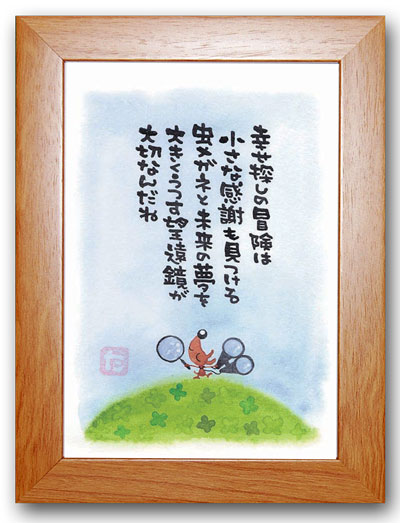 幸せ探しの冒険は
小さな感謝も見つける
虫メガネと未来の夢を
大きくうつす望遠鏡が
大切なんだね